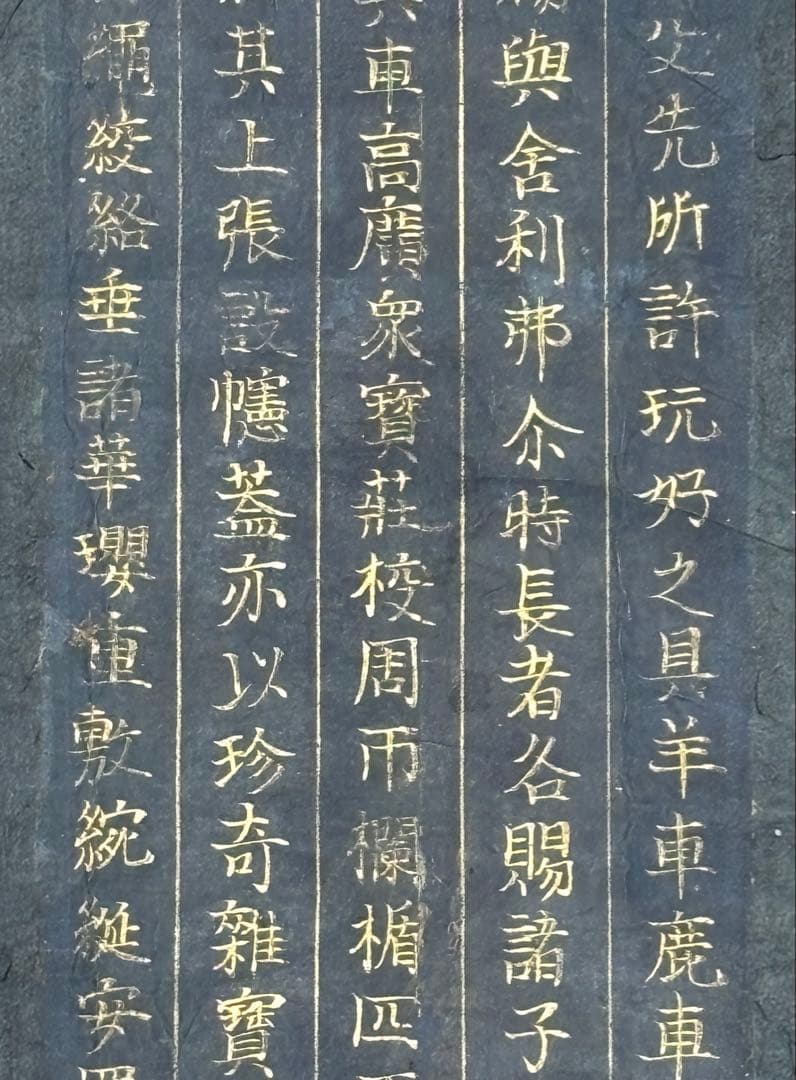 父先所許玩好之具羊車鹿車
與舍利弗尒時長者各賜諸子
車高廣眾寶莊校周帀欄楯四
其上張設幰蓋亦以珍奇雜寶
繩絞絡垂諸華瓔重敷綩綖安